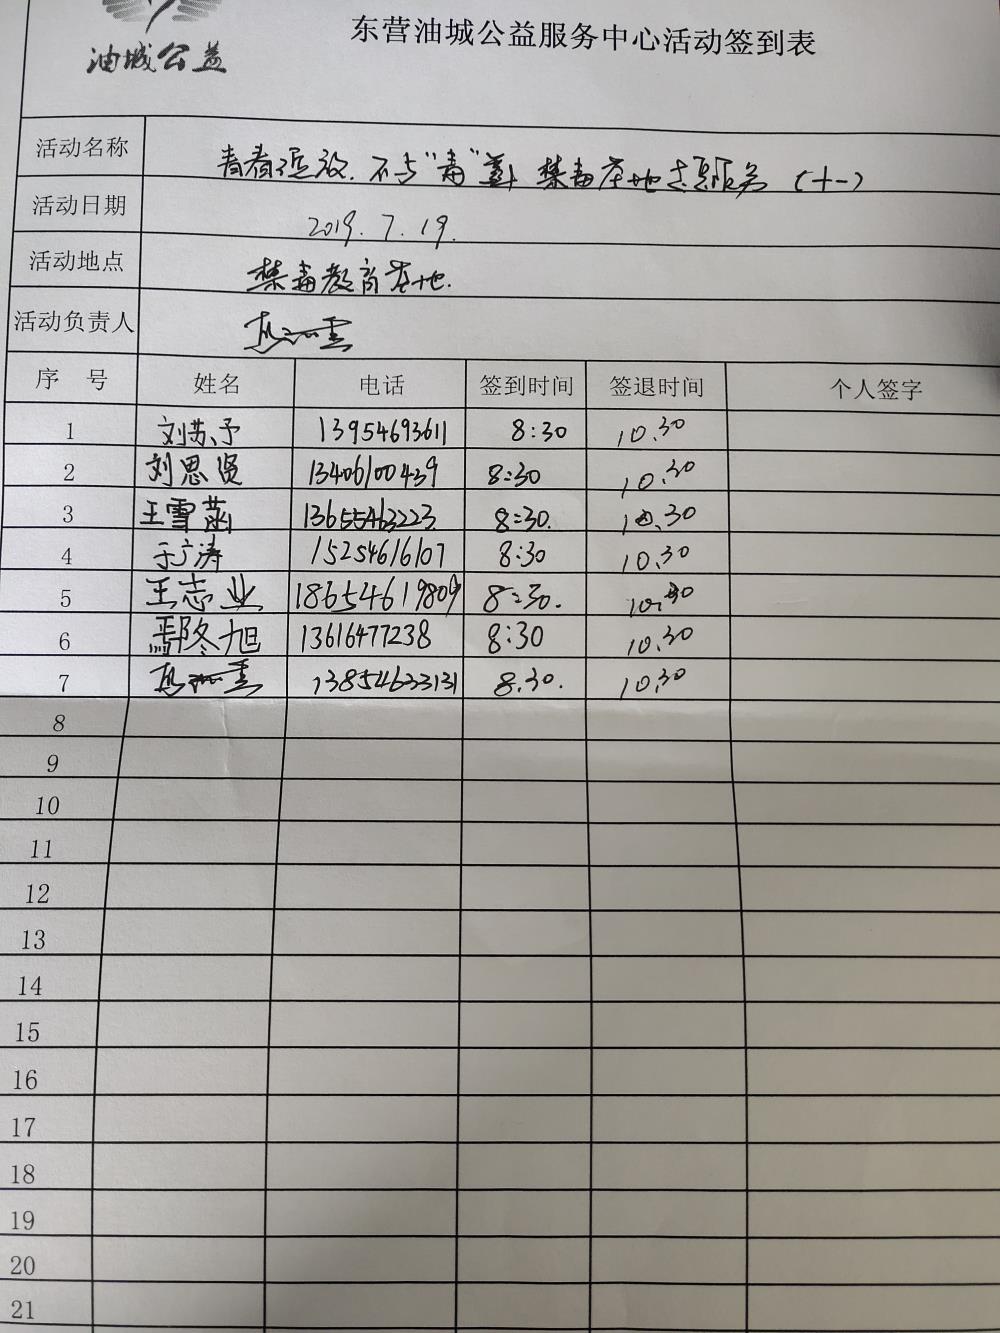 油城公益
东营油城公益服务中心活动签到表
活动名称 青春绽放.不与"毒" 禁毒基地志愿服务 (十一)
活动日期 2019.7.19.
活动地点 禁毒教育基地.
活动负责人
序号 姓名 电话 签到时间 签退时间 个人签字
1 刘苏予 13954693611 8:30 10.30
2 刘思贤 13406100439 8:30 10.30
3 王雪菡 13655463223 8:30. 10.30
4 于广涛 15254616107 8:30 10.30
5 王志业 18654619809 8:30. 10.30
6 鄢冬旭 13616477238 8:30 10.30
7 13854633131 8.30. 10.30
8
9
10
11
12
13
14
15
16
17
18
19
20
21